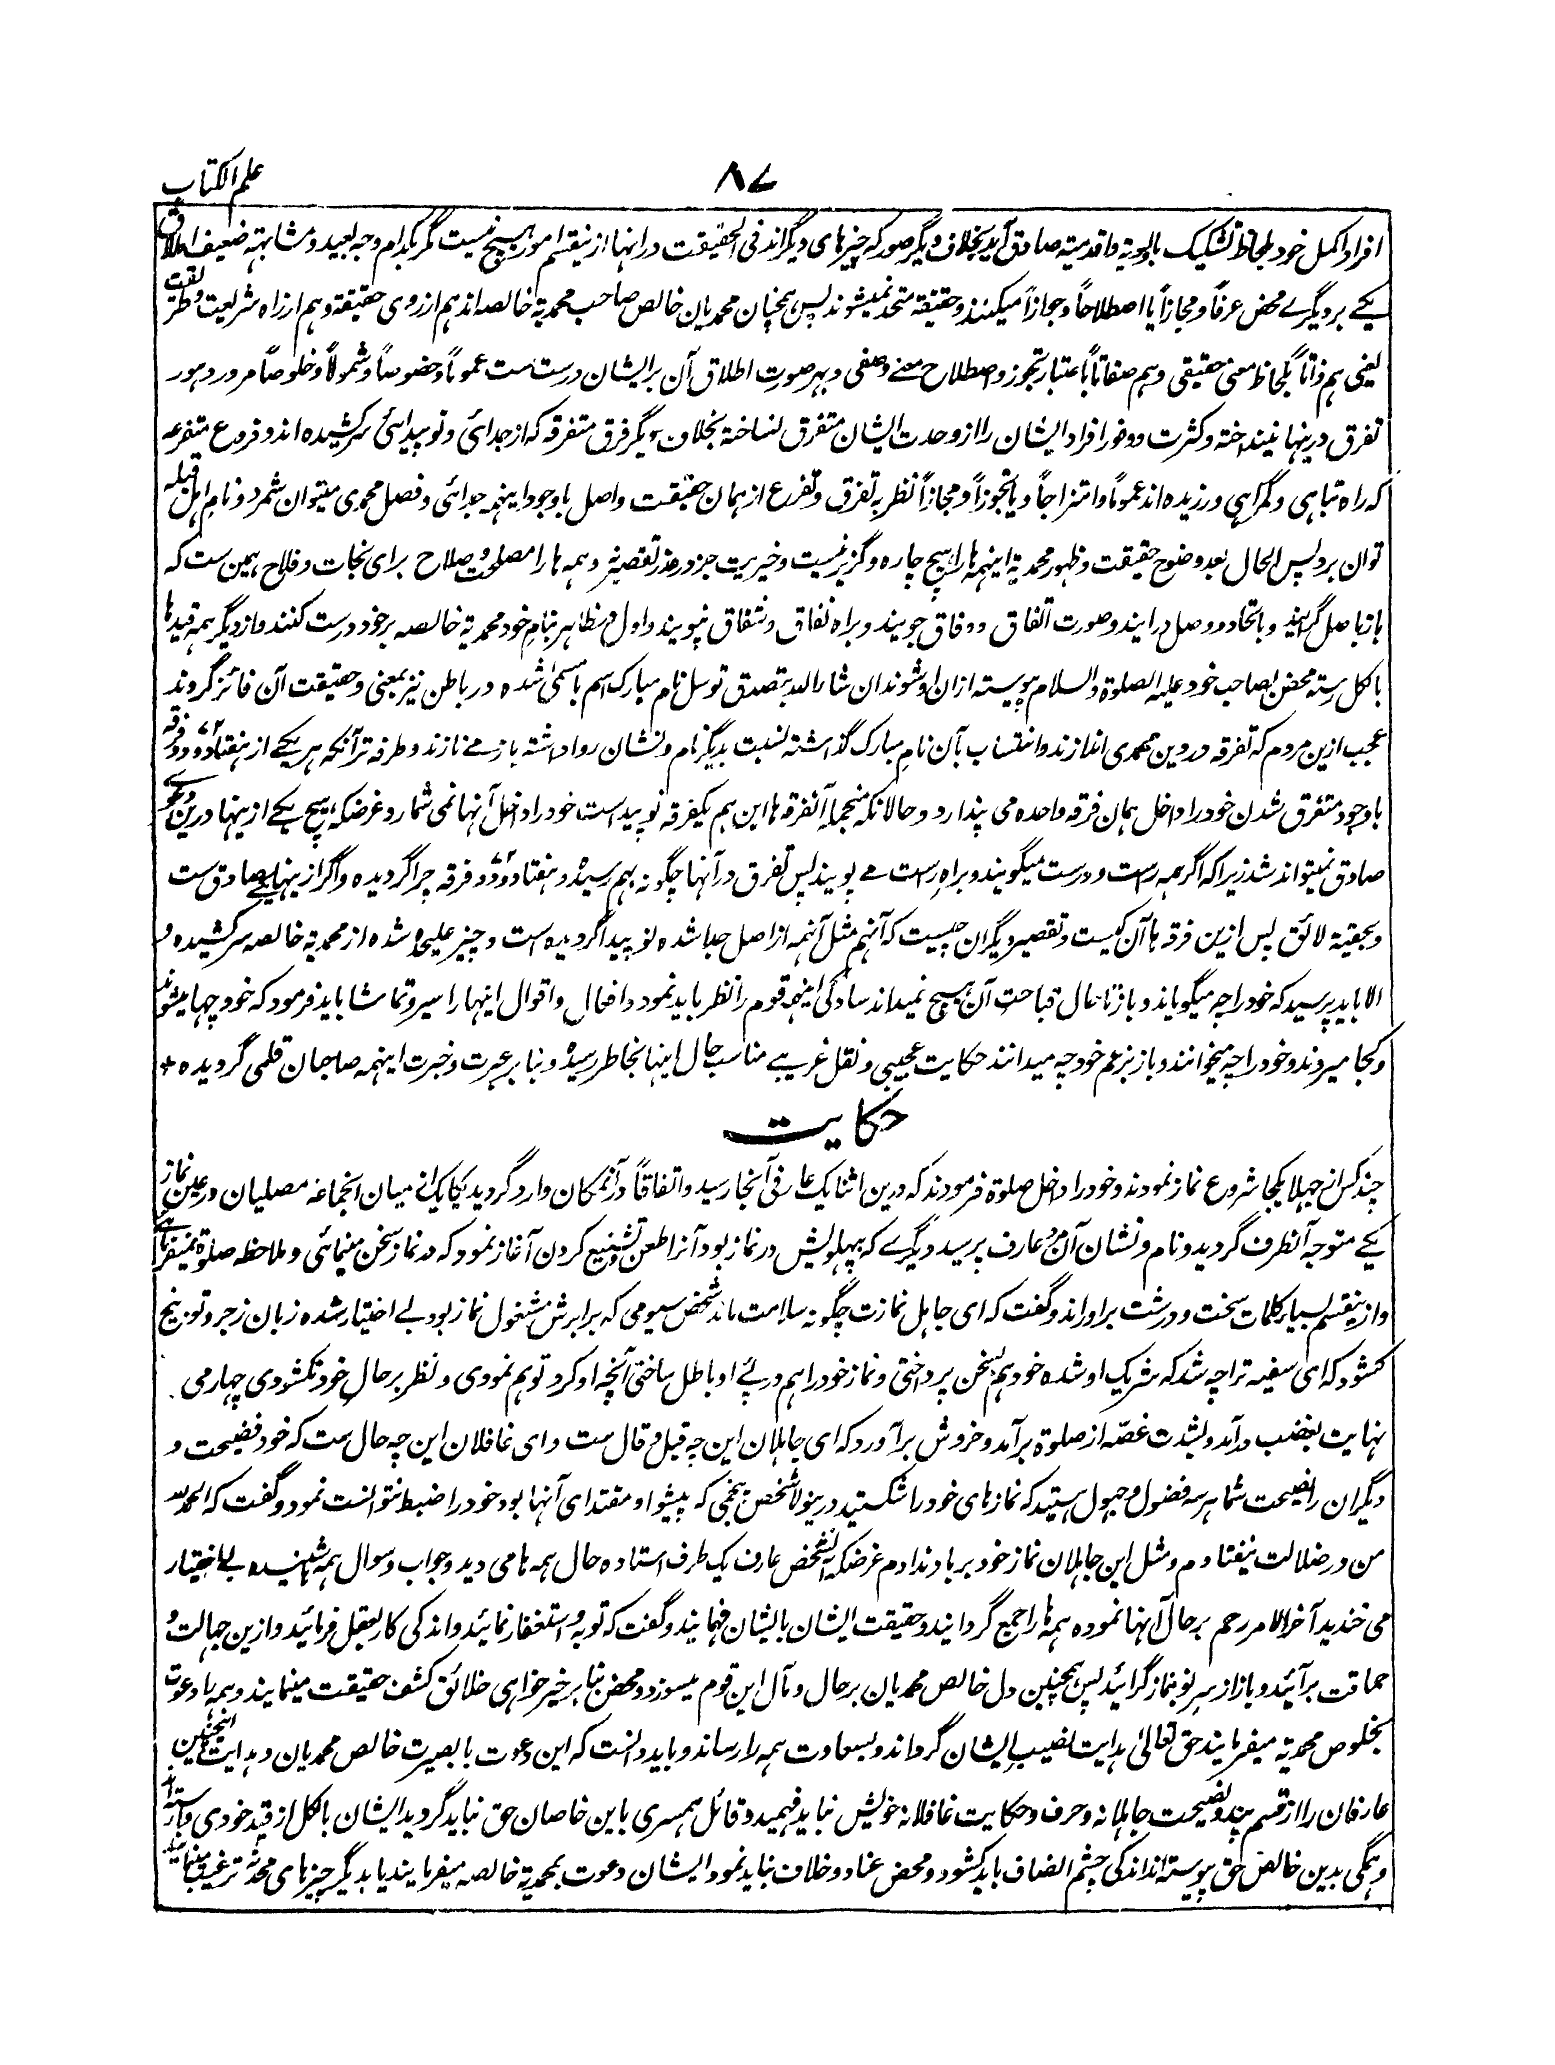 علم الکتاب
۸۷
افراد اکمل خود بلحاظ تشکیک بالویة و اقدمیة صادق آید بخلاف دیگر صور که چیزهای دیگراند فی الحقیقت در انها ازینقسم امور هیچ نیست مگر بکدام وجه بعید و مشابهته ضعیف اطلاق
یکے بر دیگرے محض عرفاً و مجازاً یا اصطلاحاً و جوازاً میکنند و حقیقة متحد نمیشوند پس همچنان محمدیان خالص صاحب محمدیة خالصه اند هم از روی حقیقة و هم از راه شریعت و طریقت
یعنی هم ذاتاً بلحاظ معنی حقیقی و هم صفاتاً باعتبار تجوز و اصطلاح معنے وصفی و بهر صورت اطلاق آن بر ایشان درست ست عموماً و خصوصاً و شمولاً و خلوصاً مرور دهور
تفرق درینها نینداخته و کثرت و وفور افراد ایشان را از وحدت ایشان متفرق نساخته بخلاف دیگر فرق متفرقه که از جدائی و نو پیدائی سر کشیده اند و فروع متفرعه
که راه تباهی و گمراهی ورزیده اند عموماً و امتزاجاً و یا تجوزاً و مجازاً نظر به تفرق و تفرع از همان حقیقت و اصل باوجود اینهمه جدائی و فصل محمدی میتوان شمرد و نام اهل قبله
توان برد پس الحال بعد وضوح حقیقت و ظهور محمدیة اینهمه ها را هیچ چاره و گزیر نیست و خیریت جز در عذر تقصیر نه و همه ها را مصلحت و صلاح برای نجات و فلاح همین ست که
باز باصل گرایند و باتحاد و وصل درایند و صورت اتفاق و وفاق جویند و براه نفاق و شقاق نپویند و اول در مظاهر بنام خود محمدیة خالصه بر خود درست کنند و از دیگر همه قیدها
بالکل رسته محض بصاحب خود علیه الصلوة والسلام پیوسته ازان او شوند ان شاء الله بتصدق توسل نام مبارک اسم با مسمیٰ شده در باطن نیز بمعنی و حقیقت آن فائز گردند
عجب ازین مردم که تفرقه در دین محمدی اندازند و انتساب بآن نام مبارک گذاشته نسبت بدیگر نام و نشان روا داشته باز مے نازند و طرفه تر آنکه هر یکے از هفتاد و دو فرقه
باوجود متفرق شدن خود را داخل همان فرقه واحده می پندارد و حالانکه منجمله آنفرقه ها این هم یکفرقه نو پیدا ست خود را داخل آنها نمی شمارد غرضکه هیچ یکے ازینها درین دعوی
صادق نمیتواند شد زیرا که اگر همه راست و درست میگویند و براه راست مے پویند پس تفرق در آنها چگونه بهم رسیده و هفتاد و دو فرقه چرا گردیده و اگر ازینها یکے صادق ست
و بحقیة لائق پس ازین فرقه ها آن کیست و تقصیر دیگران چیست که آنهم مثل آنهمه از اصل جدا شده نو پیدا گردیده است و چیز علیحده شده از محمدیة خالصه سر کشیده و
الا باید پرسید که خود را چه میگویاند و باز تا حال قباحت آن هیچ نمیداند سادگی اینهمه قوم را نظر باید نمود و افعال و اقوال اینها را سیر و تماشا باید فرمود که خود چها میشوند
و کجا میروند و خود را چه میخوانند و باز بزعم خود چه میدانند حکایت عجیبی و نقل غریبے مناسب حال اینها بخاطر رسیده و بنا بر عبرت و خبرت اینهمه صاحبان قلمی گردیده *
حکایت
چند کس از جهلا یکجا شروع نماز نمودند و خود را داخل صلوة فرمودند که درین اثنا یک عارفی آنجا رسید و اتفاقاً در آنمکان وارد گردید یکایک از میان آنجماعه مصلیان در عین نماز
یکے متوجه آنطرف گردید و نام و نشان آن مرد عارف پرسید دیگرے که پهلویش در نماز بود آنرا طعن و تشنیع کردن آغاز نمود که در نماز سخن مینمائی و ملاحظه صلوة نمیفرمائے
و ازینقسم بسیار کلمات سخت و درشت بر او راند و گفت که ای جاهل نمازت چگونه سلامت ماند شخص سیومی که برابرش مشغول نماز بود بے اختیار شده زبان زجر و توبیخ
کشود که ای سفیه ترا چه شد که شریک او شده خود هم بسخن پرداختی و نماز خود را هم در پئے او باطل ساختی آنچه او کرد تو هم نمودی و نظر بر حال خود نکشودی چهارمی
نهایت بغضب درآمد و بشدت غصّه از صلوة برآمد و خروش برآورد که ای جاهلان این چه قیل و قال ست و ای غافلان این چه حال ست که خود فضیحت و
دیگران را نصیحت شما هر سه فضول و جهول هستید که نمازهای خود را شکستید درینولا شخص پنجمی که پیشوا و مقتدای آنها بود خود را ضبط نتوانست نمود و گفت که الحمدلله
من در ضلالت نیفتادم و مثل این جاهلان نماز خود برباد ندادم غرضکه آنشخص عارف یک طرف استاده حال همه ها می دید و جواب و سوال همه شنیده بے اختیار
می خندید آخر الامر رحم بر حال آنها نموده همه ها را جمع گردانید و حقیقت ایشان بایشان فهمانید و گفت که توبه و استغفار نمائید و اندکی کار بعقل فرمائید و ازین جهالت و
حماقت برآئید و باز از سر نو بنماز گرائید پس همچنین دل خالص محمدیان بر حال و مآل این قوم میسوزد و محض بنا بر خیر خواهی خلائق کشف حقیقت مینمایند و همه را دعوت
بخلوص محمدیة میفرمایند حق تعالیٰ هدایت نصیب ایشان گرداند و بسعادت همه را رساند و باید دانست که این دعوت با بصیرت خالص محمدیان و هدایت اینچنین
عارفان را از قسم پند و نصیحت جاهلانه و حرف و حکایت غافلانه خویش نباید فهمید و قائل همسری باین خاصان حق نباید گردید ایشان بالکل از قید خودی وارسته اند
و همگی بدین خالص حق پیوسته اند اندکی چشم انصاف باید کشود و محض عناد و خلاف نباید نمود ایشان دعوت بمحمدیة خالصه میفرمایند یا بدیگر چیزهای محدثه ترغیب مینمایند